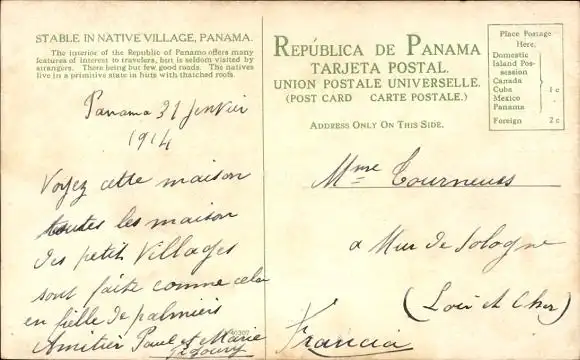 STABLE IN NATIVE VILLAGE, PANAMA.
The interior of the Republic of Panamo offers many
features of interest to travelers, but is seldom visited by
strangers. There being but few good roads. The natives
live in a primitive state in huts with thatched roofs.
Panama 31 Janvier
1914
Voyez cette maison
toutes les maison
des petit Villages
sont faite comme cela
en fielle de palmiers
Amitier Paul et Marie
REPÚBLICA DE PANAMA
TARJETA POSTAL.
UNION POSTALE UNIVERSELLE.
(POST CARD CARTE POSTALE.)
ADDRESS ONLY ON THIS SIDE.
Place Postage
Here.
Domestic
Island Pos-
session
Canada
Cuba 1 c
Mexico
Panama
Foreign 2 c
Mme Tourneurs
a Mur de Sologne
(Loir et Cher)
Francia